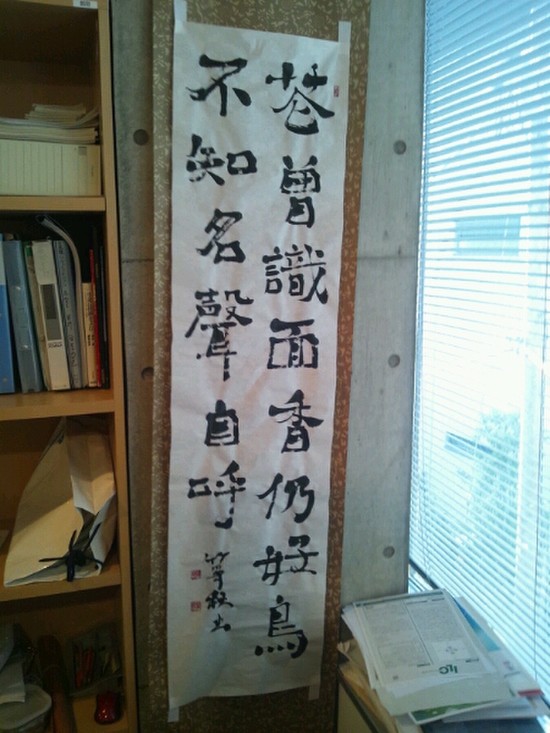 花曾識面香仍好鳥
不知名聲自呼